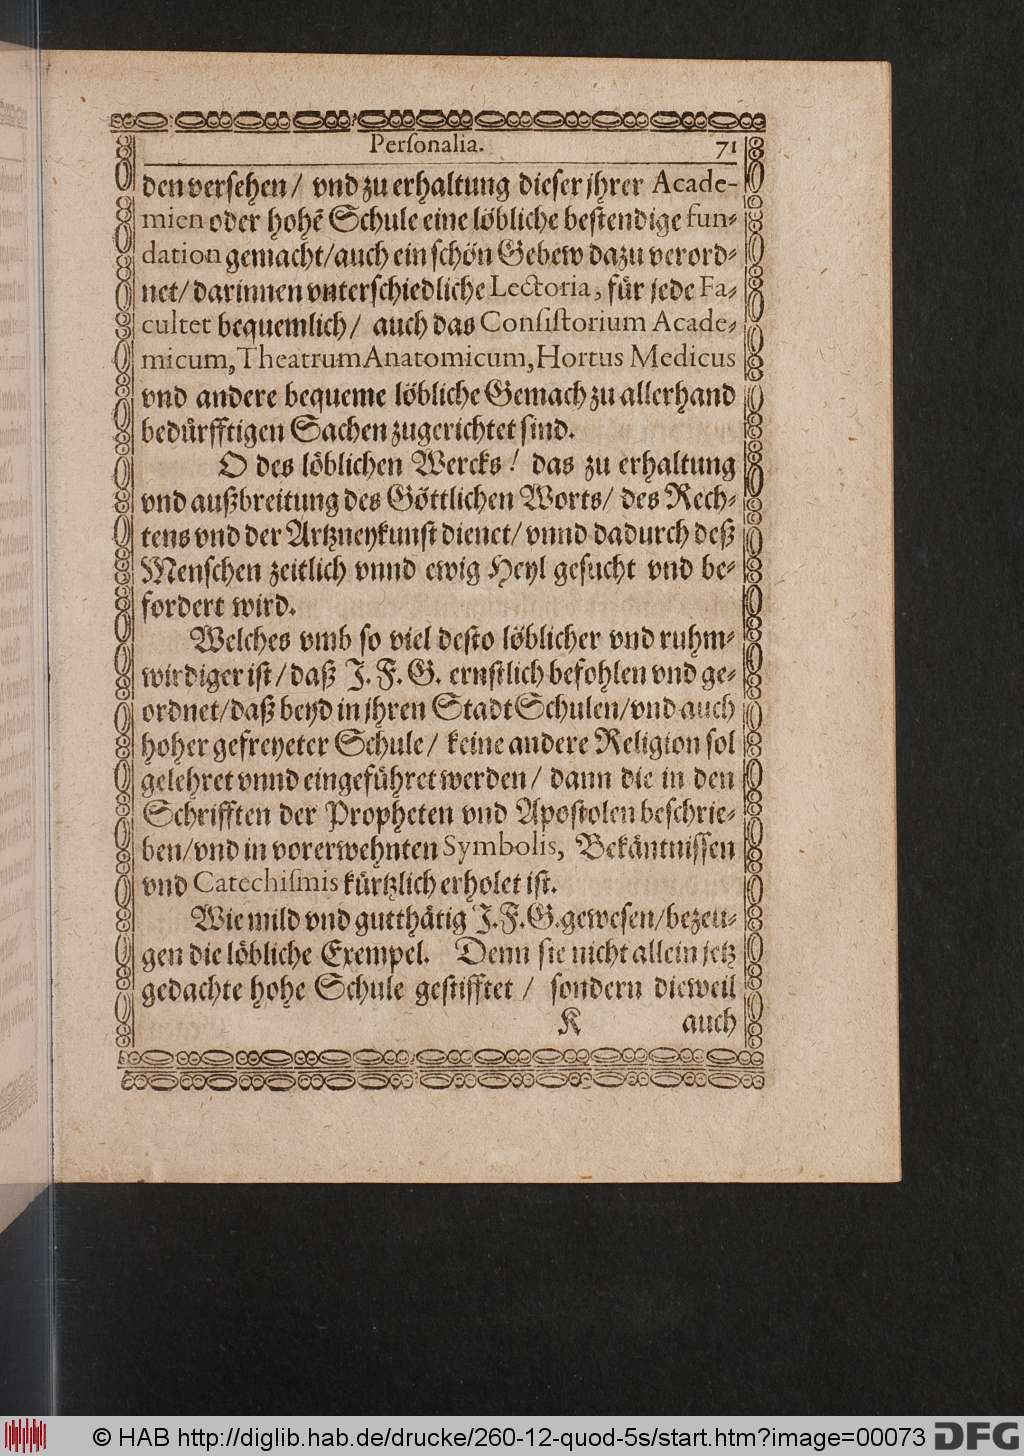 Perſonalia. 71
den verſehen/ vnd zu erhaltung dieſer jhrer Acade-
mien oder hohẽ Schule eine löbliche beſtendige fun-
dation gemacht/auch ein ſchön Gebew dazu verord-
net/ darinnen vnterſchiedliche Lectoria, für jede Fa-
cultet bequemlich/ auch das Conſiſtorium Acade-
micum, Theatrum Anatomicum, Hortus Medicus
vnd andere bequeme löbliche Gemach zu allerhand
bedürfftigen Sachen zugerichtet ſind.
O des löblichen Wercks! das zu erhaltung
vnd außbreitung des Göttlichen Worts/ des Rech-
tens vnd der Artzneykunſt dienet/ vnnd dadurch deß
Menſchen zeitlich vnnd ewig Heyl geſucht vnd be-
fordert wird.
Welches vmb ſo viel deſto löblicher vnd ruhm-
wirdiger iſt/ daß J. F. G. ernſtlich befohlen vnd ge-
ordnet/daß beyd in jhren Stadt Schulen/vnd auch
hoher gefreyeter Schule/ keine andere Religion ſol
gelehret vnnd eingeführet werden/ dann die in den
Schrifften der Propheten vnd Apoſtolen beſchrie-
ben/vnd in vorerwehnten Symbolis, Bekäntniſſen
vnd Catechiſmis kürtzlich erholet iſt.
Wie mild vnd gutthätig J.F.G. geweſen/bezeu-
gen die löbliche Exempel. Denn ſie nicht allein jetz
gedachte hohe Schule geſtifftet / ſondern dieweil
K auch
© HAB http://diglib.hab.de/drucke/260-12-quod-5s/start.htm?image=00073 DFG